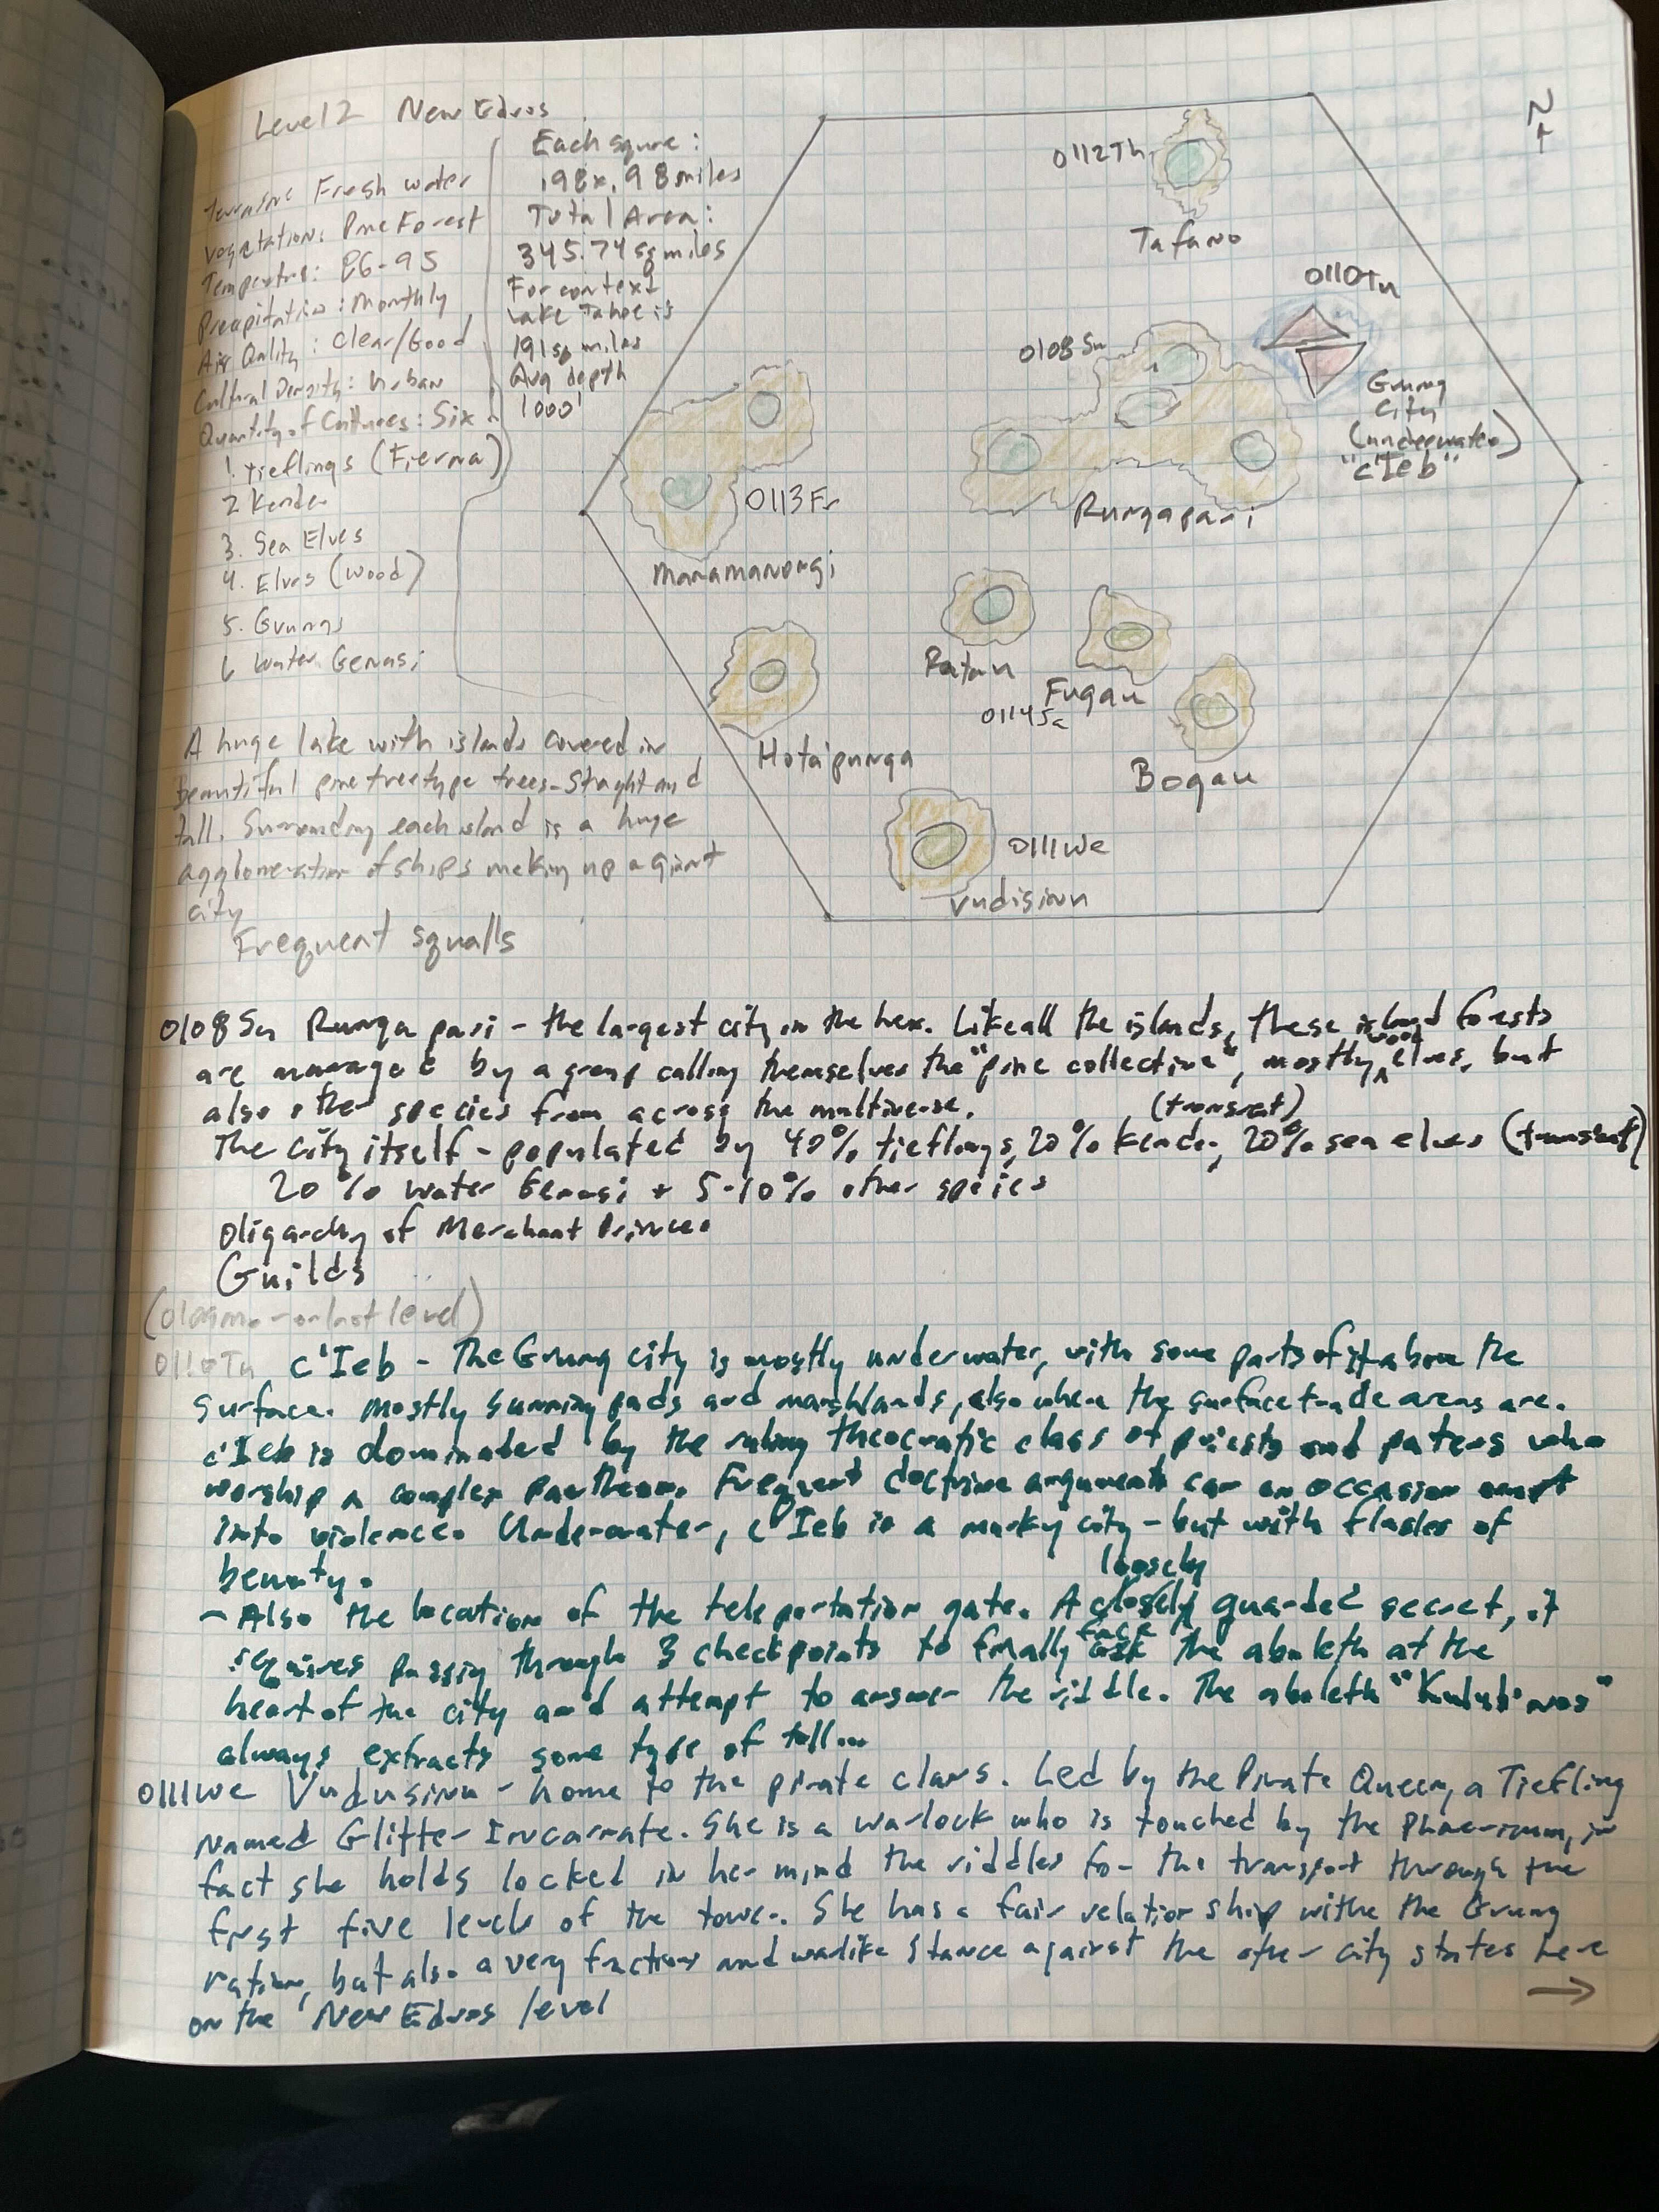 Level 2 New Edros
Terrain: Fresh water
Vegetation: Pine Forest
Temperature: 86-95
Precipitation: Monthly
Air Qality: Clear/Good
Cultural Density: Urban
Quantity of Cultures: Six
1. Tieflings (Fierna)
2 Kender
3. Sea Elves
4. Elves (Wood)
5. Grungs
6 Water Genasi
Each square:
.98x.98 miles
Total Area:
345.74 sq miles
For context
Lake Tahoe is
191 sq miles
Avg depth
1000'
N
0112Th
Tafano
0110Tu
0108Su
Grung
City
(underwater)
"c'Ieb"
Rungapari
0113Fr
Manamanongi
Ratan
Fugau
0114Sa
Hotaipunga
Bogau
0111We
Vudisiun
A huge lake with islands covered in
beautiful pine tree type trees - Straght and
tall. Surrounding each island is a huge
agglomeration of ships making up a giant
city
Frequent squalls
0108 Su Runga pari - the largest city in the hex. Like all the islands, these island forests
are managed by a group calling themselves the "pine collective", mostly wood elves, but
also other species from across the multiverse.
(transient)
The city itself - populated by 40% tieflings, 20% kender, 20% sea elves (transient)
20% water Genasi + 5-10% other species
Oligarchy of Merchant Princes
Guilds
(0109mo - on last level)
0110Tu c'Ieb - The Grung city is mostly underwater, with some parts of it above the
surface. Mostly sunning pads and marshlands, also where the surface trade areas are.
c'Ieb is dominated by the ruling theocratic class of priests and paters who
worship a complex pantheon. Frequent doctrine arguments can on occasion erupt
into violence. Underwater, c'Ieb is a murky city - but with flashes of
beauty.
- Also the location of the teleportation gate. A closely loosely guarded secret, it
requires passing through 3 checkpoints to finally face the aboleth at the
heart of the city and attempt to answer the riddle. The aboleth
always extracts some type of toll...
0111We Vudusiun - home to the pirate clans. Led by the Pirate Queen, a Tiefling
named Glitter Incarnate. She is a warlock who is touched by the in
fact she holds locked in her mind the riddles for the transport through the
first five levels of the tower. She has a fair relation ship withe the Grung
nation, but also a very fractious and warlike stance against the other city states here
on the New Edros level